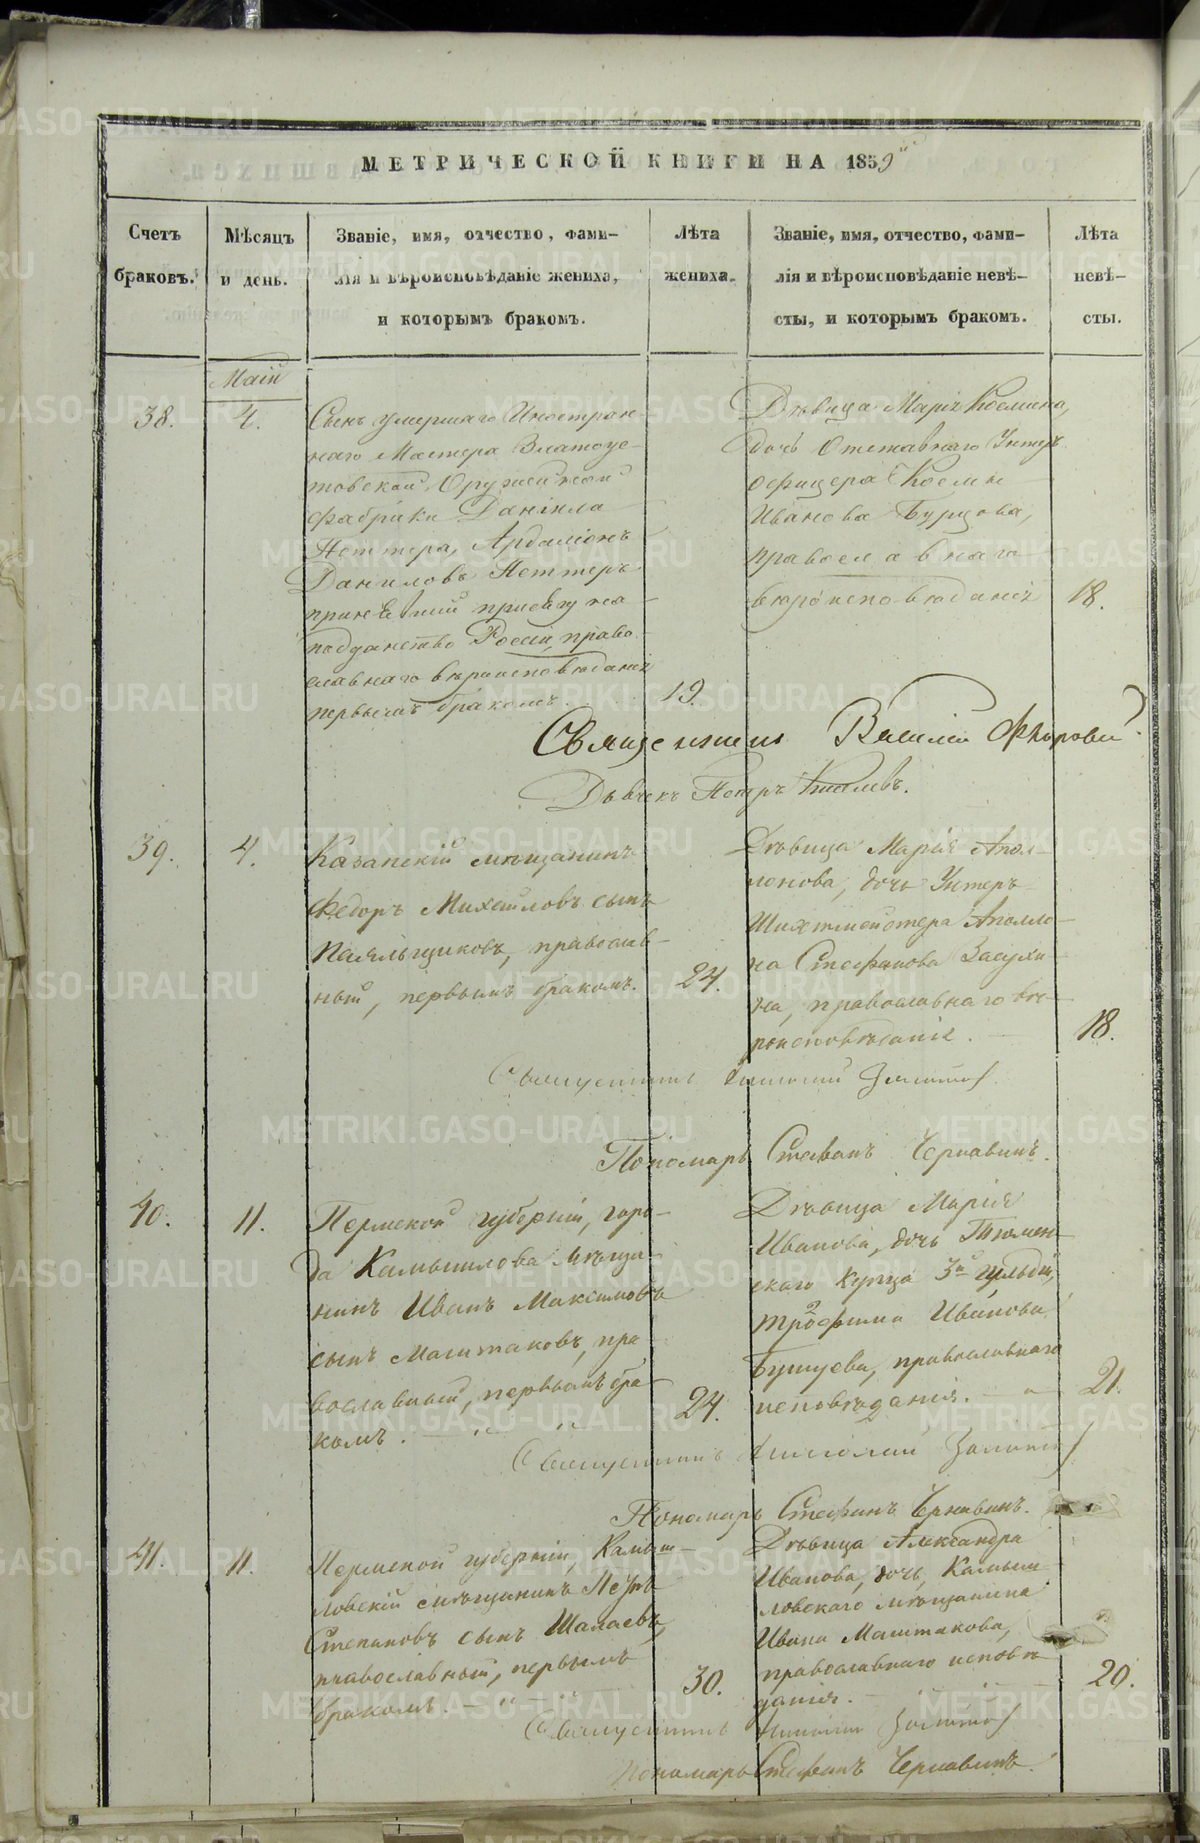 МЕТРИЧЕСКОЙ КНИГИ НА 1859й
Счетъ браковъ.
Мѣсяцъ и день.
Званіе, имя, отчество, фами-
лія и вѣроисповѣданіе жениха,
и которымъ бракомъ.
Лѣта жениха.
Званіе, имя, отчество, фами-
лія и вѣроисповѣданіе невѣ-
сты, и которымъ бракомъ.
Лѣта невѣ-
сты.
Маій
38.
4.
Сынъ умершаго Иностран-
наго Мастера Златоус-
товской Оружейной
фабрики Даніила
Неттера, Ардаліонъ
Даниловъ Неттеръ
принявшій присягу на
подданство Россіи, право-
славнаго вѣроисповѣданія
первымъ бракомъ.
19.
Дѣвица Марія Косьмина,
дочь Отставнаго Унтеръ
офицера Косьмы
Иванова Бурцова,
православнаго
вѣроисповѣданія
18.
Священникъ Василій Флоровскій
Дьячекъ Петръ
39.
4.
Казанскій мѣщанинъ
Федоръ Михайловъ сынъ
Паяльщиковъ, православ-
ный, первымъ бракомъ.
24.
Дѣвица Марія Апол-
лонова, дочь Унтеръ-
Шихтмейстера Аполло-
на Стефанова Засухи-
на, православнаго вѣ-
роисповѣданія.
18.
Священникъ Николай
Пономарь Стефанъ Чернавинъ.
40.
11.
Пермской губерніи, горо-
да Камышлова мѣща-
нинъ Иванъ Максимовъ
сынъ Маштаковъ, пра-
вославный, первымъ бра-
комъ.
24.
Дѣвица Марія
Иванова, дочь Тюмен-
скаго Купца 3й гильдіи,
Трофима Иванова
Бушуева, православнаго
исповѣданія.
21.
Священникъ Николай
Пономарь Стефанъ Чернавинъ.
41.
11.
Пермской губерніи, Камыш-
ловскій мѣщанинъ Петръ
Степановъ сынъ Шалаевъ,
православный, первымъ
бракомъ.
30.
Дѣвица Александра
Иванова, дочь Камыш-
ловскаго мѣщанина
Ивана Маштакова,
православнаго исповѣ-
данія.
20.
Священникъ Николай
Пономарь Стефанъ Чернавинъ.
METRIKI.GASO-URAL.RU